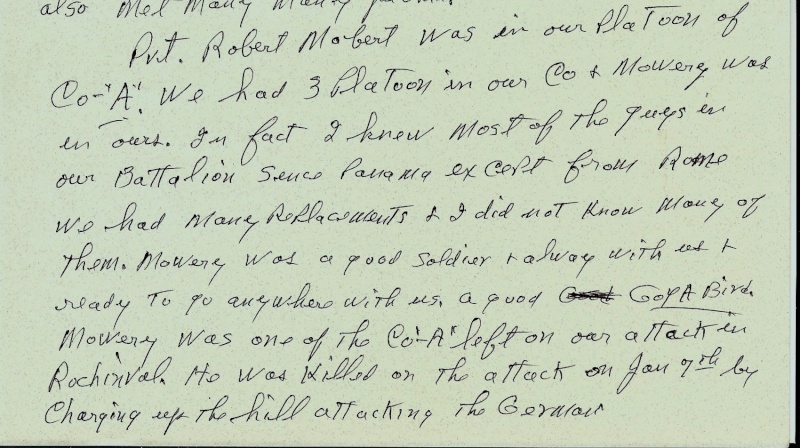 also Met Many Many
Pvt. Robert Mobert was in our Platoon of
Co-"A". We had 3 Platoon in our Co & Mowery was
in ours. In fact I knew most of the guys in
our Battalion Sence Panama except from Rome
we had many Replacements & I did not know many of
them. Mowery was a good soldier & alway with us &
ready to go anywhere with us. a good GoyA Bird.
Mowery was one of the Co"A" left on our attack in
Rochinval. He was killed on the attack on Jan 7th by
Charging up the hill attacking the German